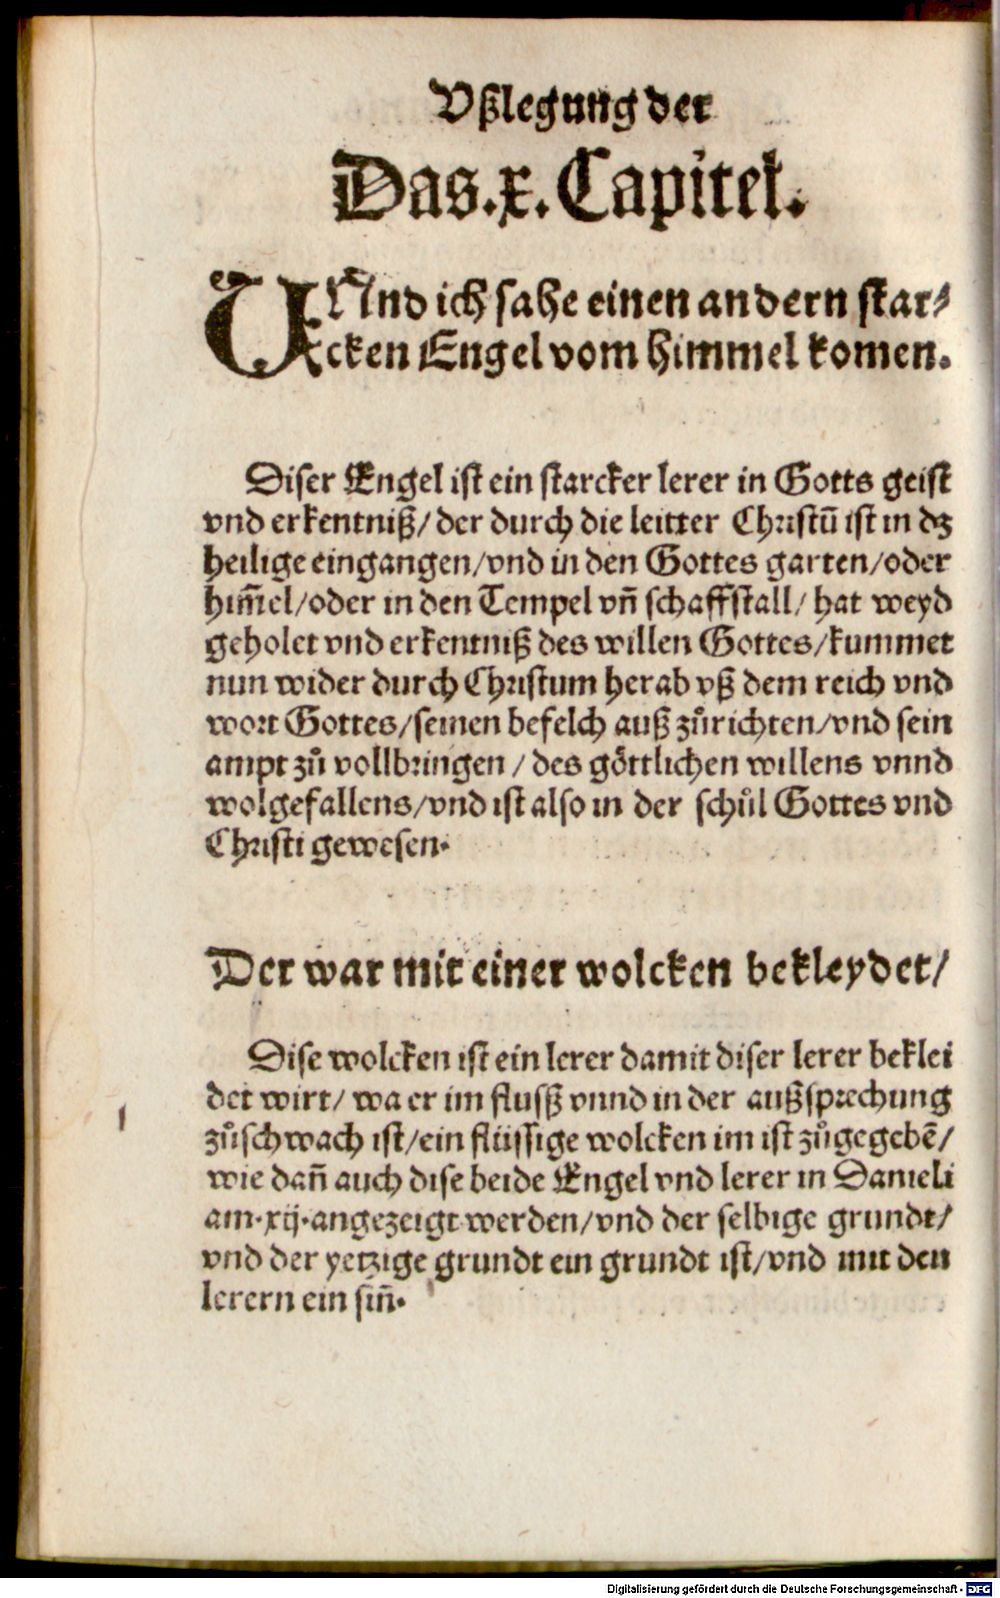 Vßlegung der
Das.x. Capitel.
UNnd ich sahe einen andern star/
cken Engel vom himmel komen.
Diser Engel ist ein starcker lerer in Gotts geist
vnd erkentniß/ der durch die leitter Christū ist in dz
heilige eingangen/vnd in den Gottes garten/oder
him̄el/oder in den Tempel vn̄ schaffstall/ hat weyd
geholet vnd erkentniß des willen Gottes/kummet
nun wider durch Christum herab vß dem reich vnd
wort Gottes/seinen befelch auß zůrichten/vnd sein
ampt zů vollbringen / des göttlichen willens vnnd
wolgefallens/vnd ist also in der schůl Gottes vnd
Christi gewesen.
Der war mit einer wolcken bekleydet/
Dise wolcken ist ein lerer damit diser lerer beklei
det wirt/ wa er im flusß vnnd in der außsprechung
zůschwach ist/ein flüssige wolcken im ist zůgegebē/
wie dan̄ auch dise beide Engel vnd lerer in Danieli
am.xij.angezeigt werden/vnd der selbige grundt/
vnd der yetzige grundt ein grundt ist/vnd mit den
lerern ein sin̄.
Digitalisierung gefördert durch die Deutsche Forschungsgemeinschaft - DFG